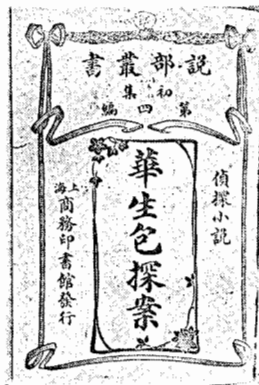 說部叢書
初集
第四編
偵探小說
華生包探案
上海商務印書館發行